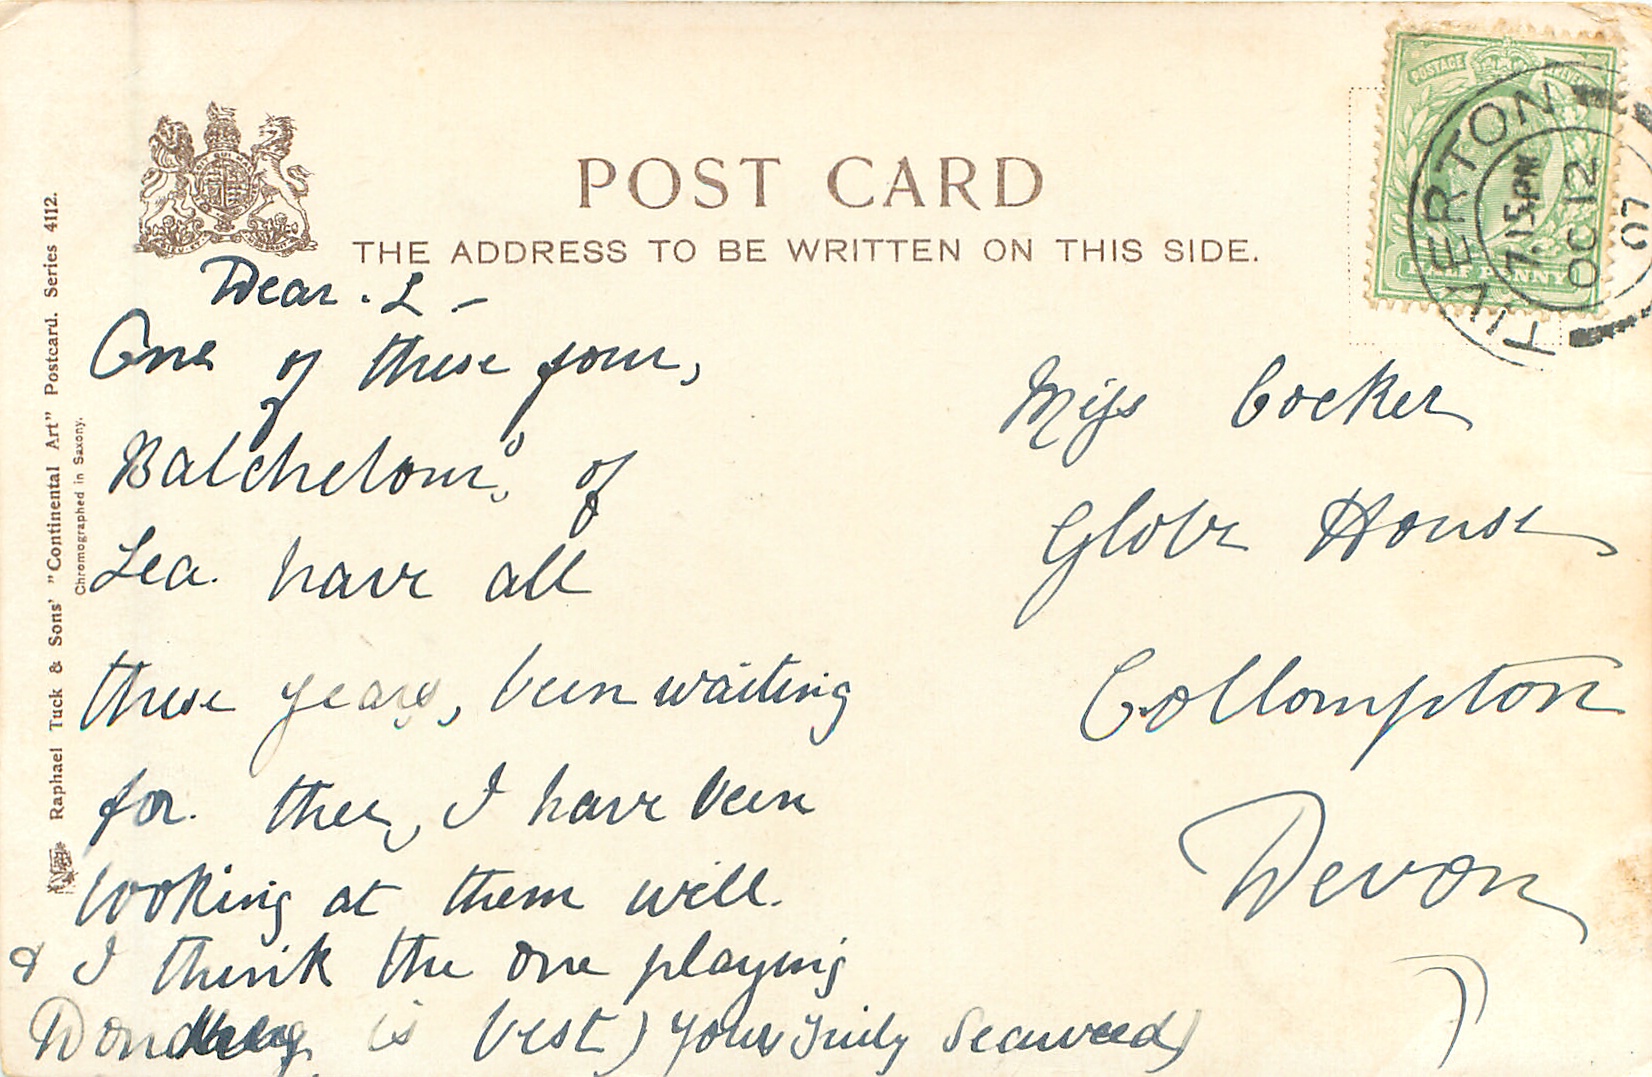 POST CARD
THE ADDRESS TO BE WRITTEN ON THIS SIDE.
POSTAGE
HALF PENNY
TIVERTON
7.15PM
OC 12
07
Raphael Tuck & Sons' "Continental Art" Postcard. Series 4112.
Chromographed in Saxony.
Dear. L –
One of these four,
Batchelours, of
Lea. have all
these years, been waiting
for. thee, I have been
looking at them well.
& I think the one playing
is best) Yours Truly Seaweed)
Miss Cocker
Globe House
Collompton
Devon